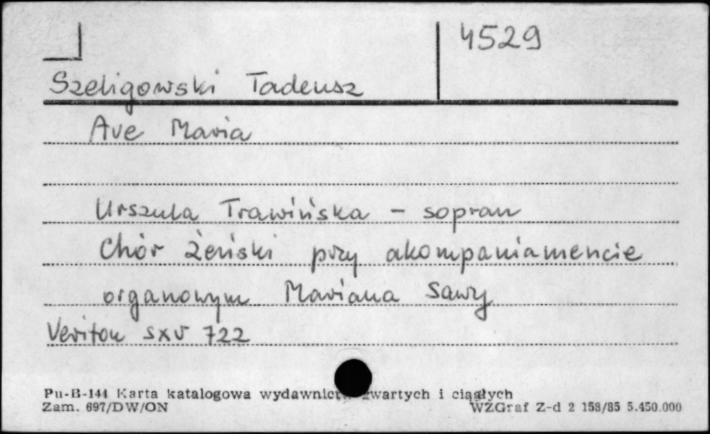 4529
Szeligowski Tadeusz
Ave Maria
Urszula Trawińska - sopran
Chór żeński przy akompaniamencie
organowym Mariana Sawy
Veriton sxv 722
Pu-B-144 Karta katalogowa wydawnictw zwartych i ciągłych
Zam. 697/DW/ON WZGraf Z-d 2 158/85 5.450.000